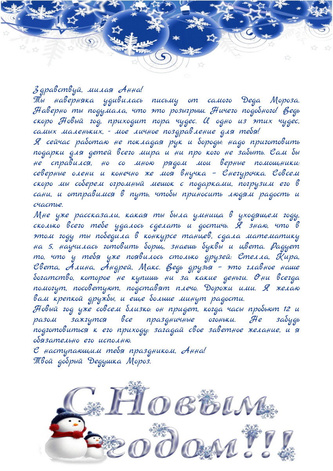 Здравствуй, милая Анна!
Ты наверняка удивилась письму от самого Деда Мороза.
Наверно ты подумала, что это розыгрыш. Ничего подобного! Ведь
скоро Новый год, приходит пора чудес. И одно из этих чудес,
самых маленьких, - мое личное поздравление для тебя!
Я сейчас работаю не покладая рук и бороды: надо приготовить
подарки для детей всего мира и ни про кого не забыть. Сам бы
не справился, но со мною рядом мои верные помощники:
северные олени и конечно же моя внучка - Снегурочка. Совсем
скоро мы соберем огромный мешок с подарками, погрузим его в
сани, и отправимся в путь, чтобы приносить людям радость и
счастье.
Мне уже рассказали, какая ты была умница в уходящем году,
сколько всего тебе удалось сделать и достичь. Я знаю, что в
этом году ты победила в конкурсе танцев, сдала математику
на 5, научилась готовить борщ, знаешь буквы и цвета. Радует
то, что у тебя уже появилось столько друзей: Стелла, Кира,
Света, Алина, Андрей, Макс. Ведь друзья - это главное наше
богатство, которое не купишь ни за какие деньги. Они всегда
помогут, посоветуют, подставят плечо. Дорожи ими. Я желаю
вам крепкой дружбы, и еще больше минут радости.
Новый год уже совсем близко, он придет, когда часы пробьют 12 и
разом зажгутся все праздничные огоньки. Не забудь
подготовиться к его приходу: загадай свое заветное желание, и я
обязательно его исполню.
С наступающим тебя праздником, Анна!
Твой добрый Дедушка Мороз.
С Новым
годом!!!